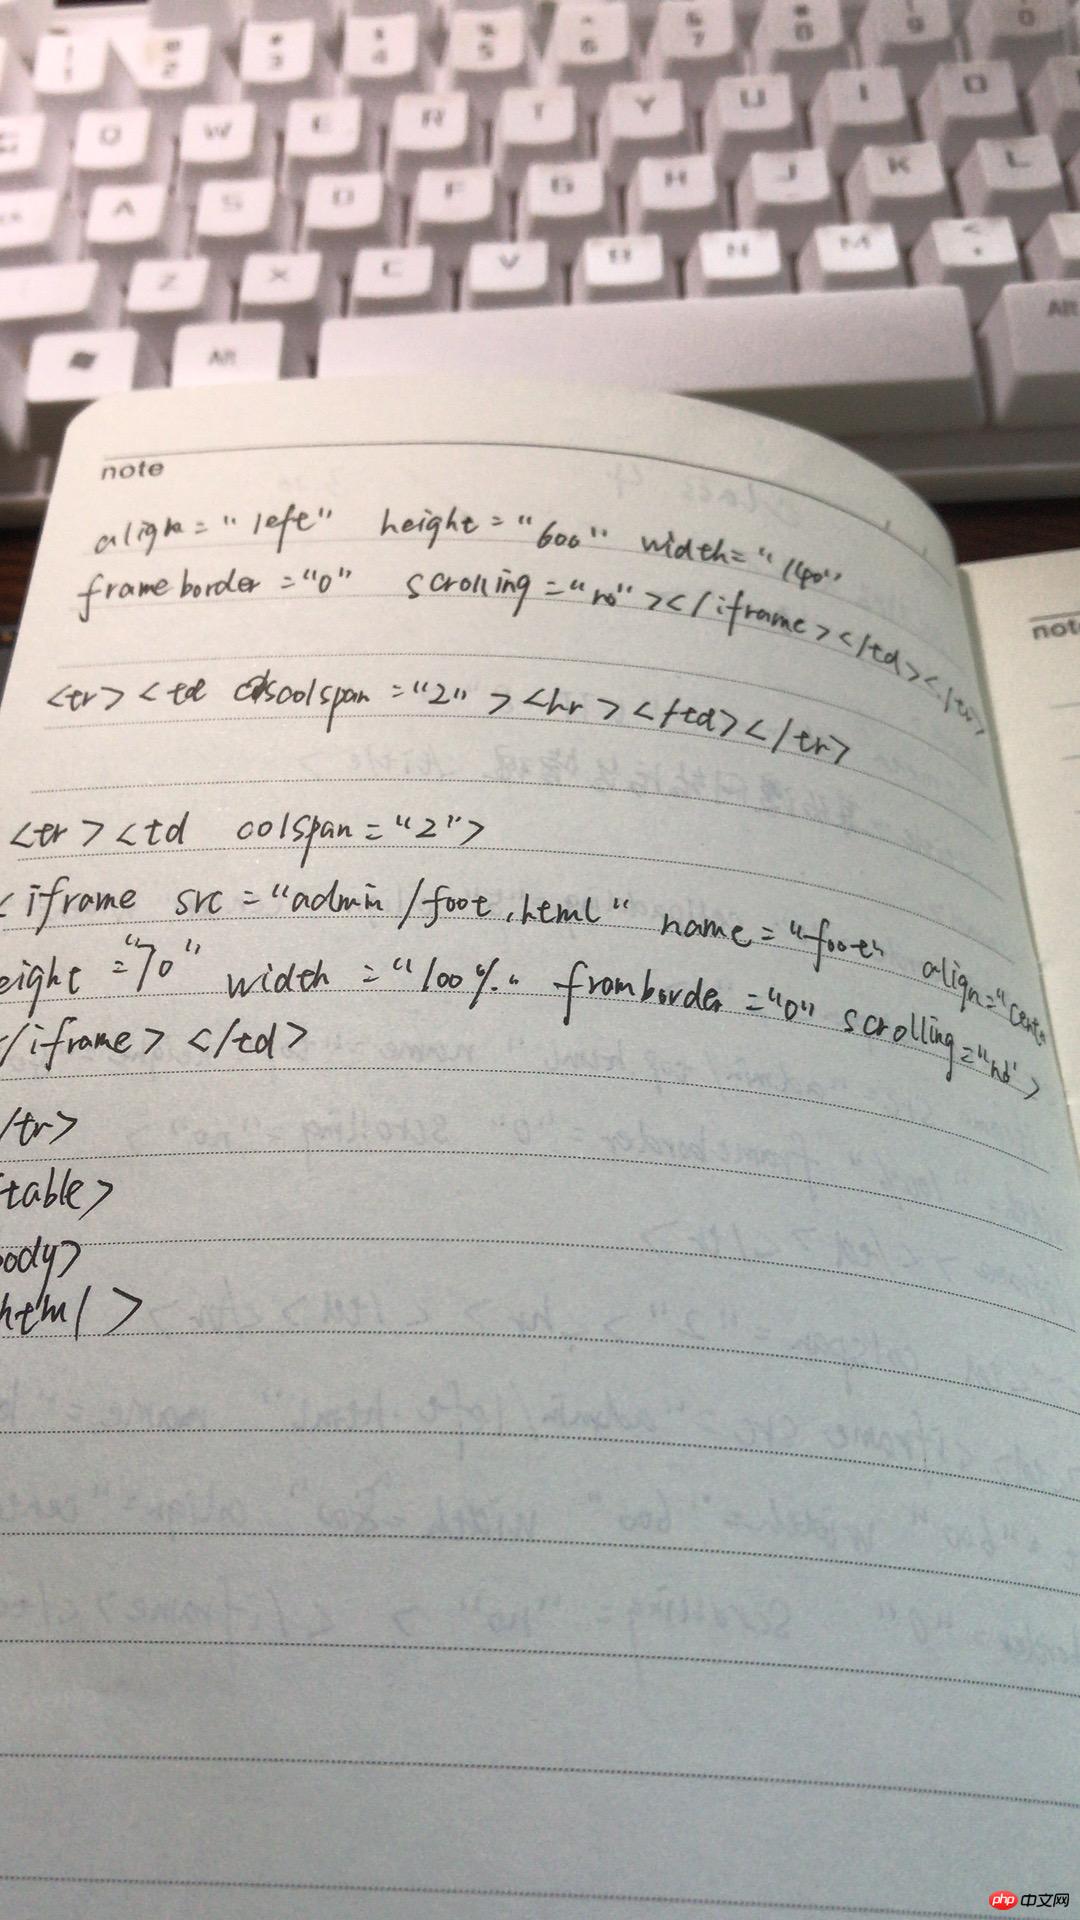 1 2 3 4 5 6 7 8 9 0
Q W E R T Y U I O
A S D F G H J K L
Z X C V B N M <
Alt Alt
note
align="left" height="600" width="1400"
frameborder="0" scrolling="no"></iframe></td></tr>
<tr><td colspan="2"><hr></td></tr>
<tr><td colspan="2">
<iframe src="admin/foot.html" name="foot" align="cent
eight="70" width="100%" framborder="0" scrolling="no">
</iframe></td>
/tr>
table>
body>
html>
note
php 中文网